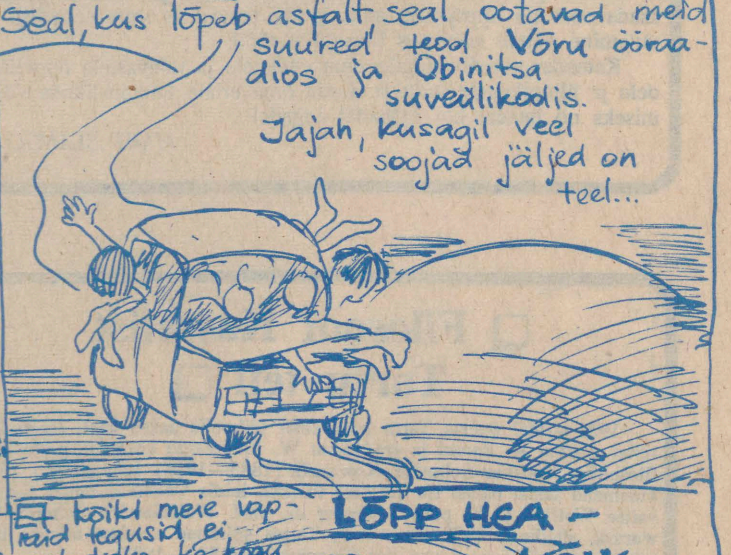 Seal, kus lõpeb asfalt, seal ootavad meid
suured teod Võru ööraa-
dios ja Obinitsa
suveülikoolis.
Jajah, kusagil veel
soojad jäljed on
teel...
Et kõiki meie vap-
raid tegusid ei
LÕPP HEA -